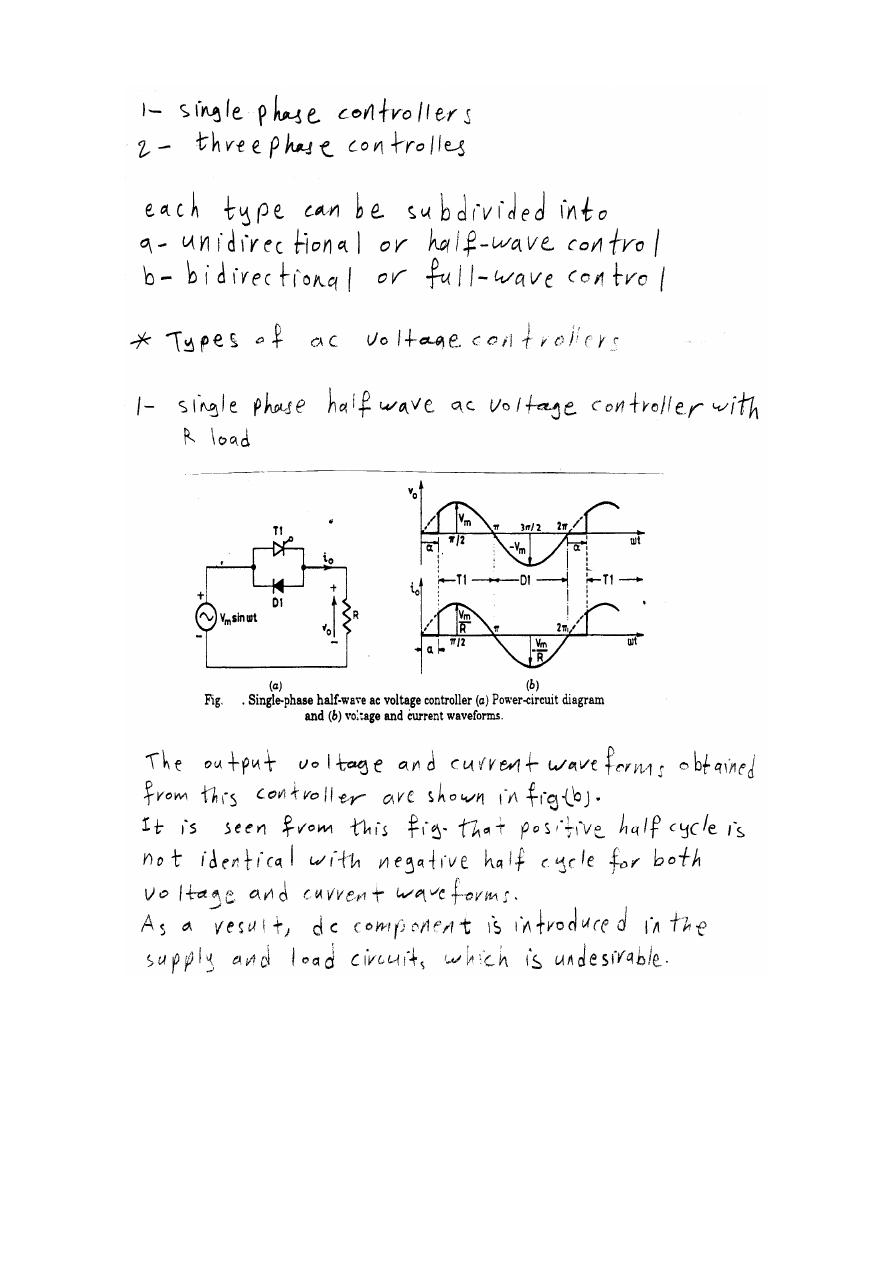 1- single phase controllers
2 - three phase controlles
each type can be subdivided into
a- unidirectional or half-wave control
b- bidirectional or full-wave control
* Types of ac voltage controllers
1- single phase half wave ac voltage controller with
R load
T1
D1
i₀
+
-
Vₘ sin ωt
+
v₀
-
R
(a)
v₀
Vₘ
π/2
π
3π/2
2π
-Vₘ
α
α
ωt
T1
D1
T1
i₀
Vₘ/R
π/2
π
2π
-Vₘ/R
α
ωt
(b)
Fig. . Single-phase half-wave ac voltage controller (a) Power-circuit diagram
and (b) voltage and current waveforms.
The output voltage and current waveforms obtained
from this controller are shown in fig.(b).
It is seen from this fig. that positive half cycle is
not identical with negative half cycle for both
voltage and current waveforms.
As a result, dc component is introduced in the
supply and load circuits, which is undesirable.